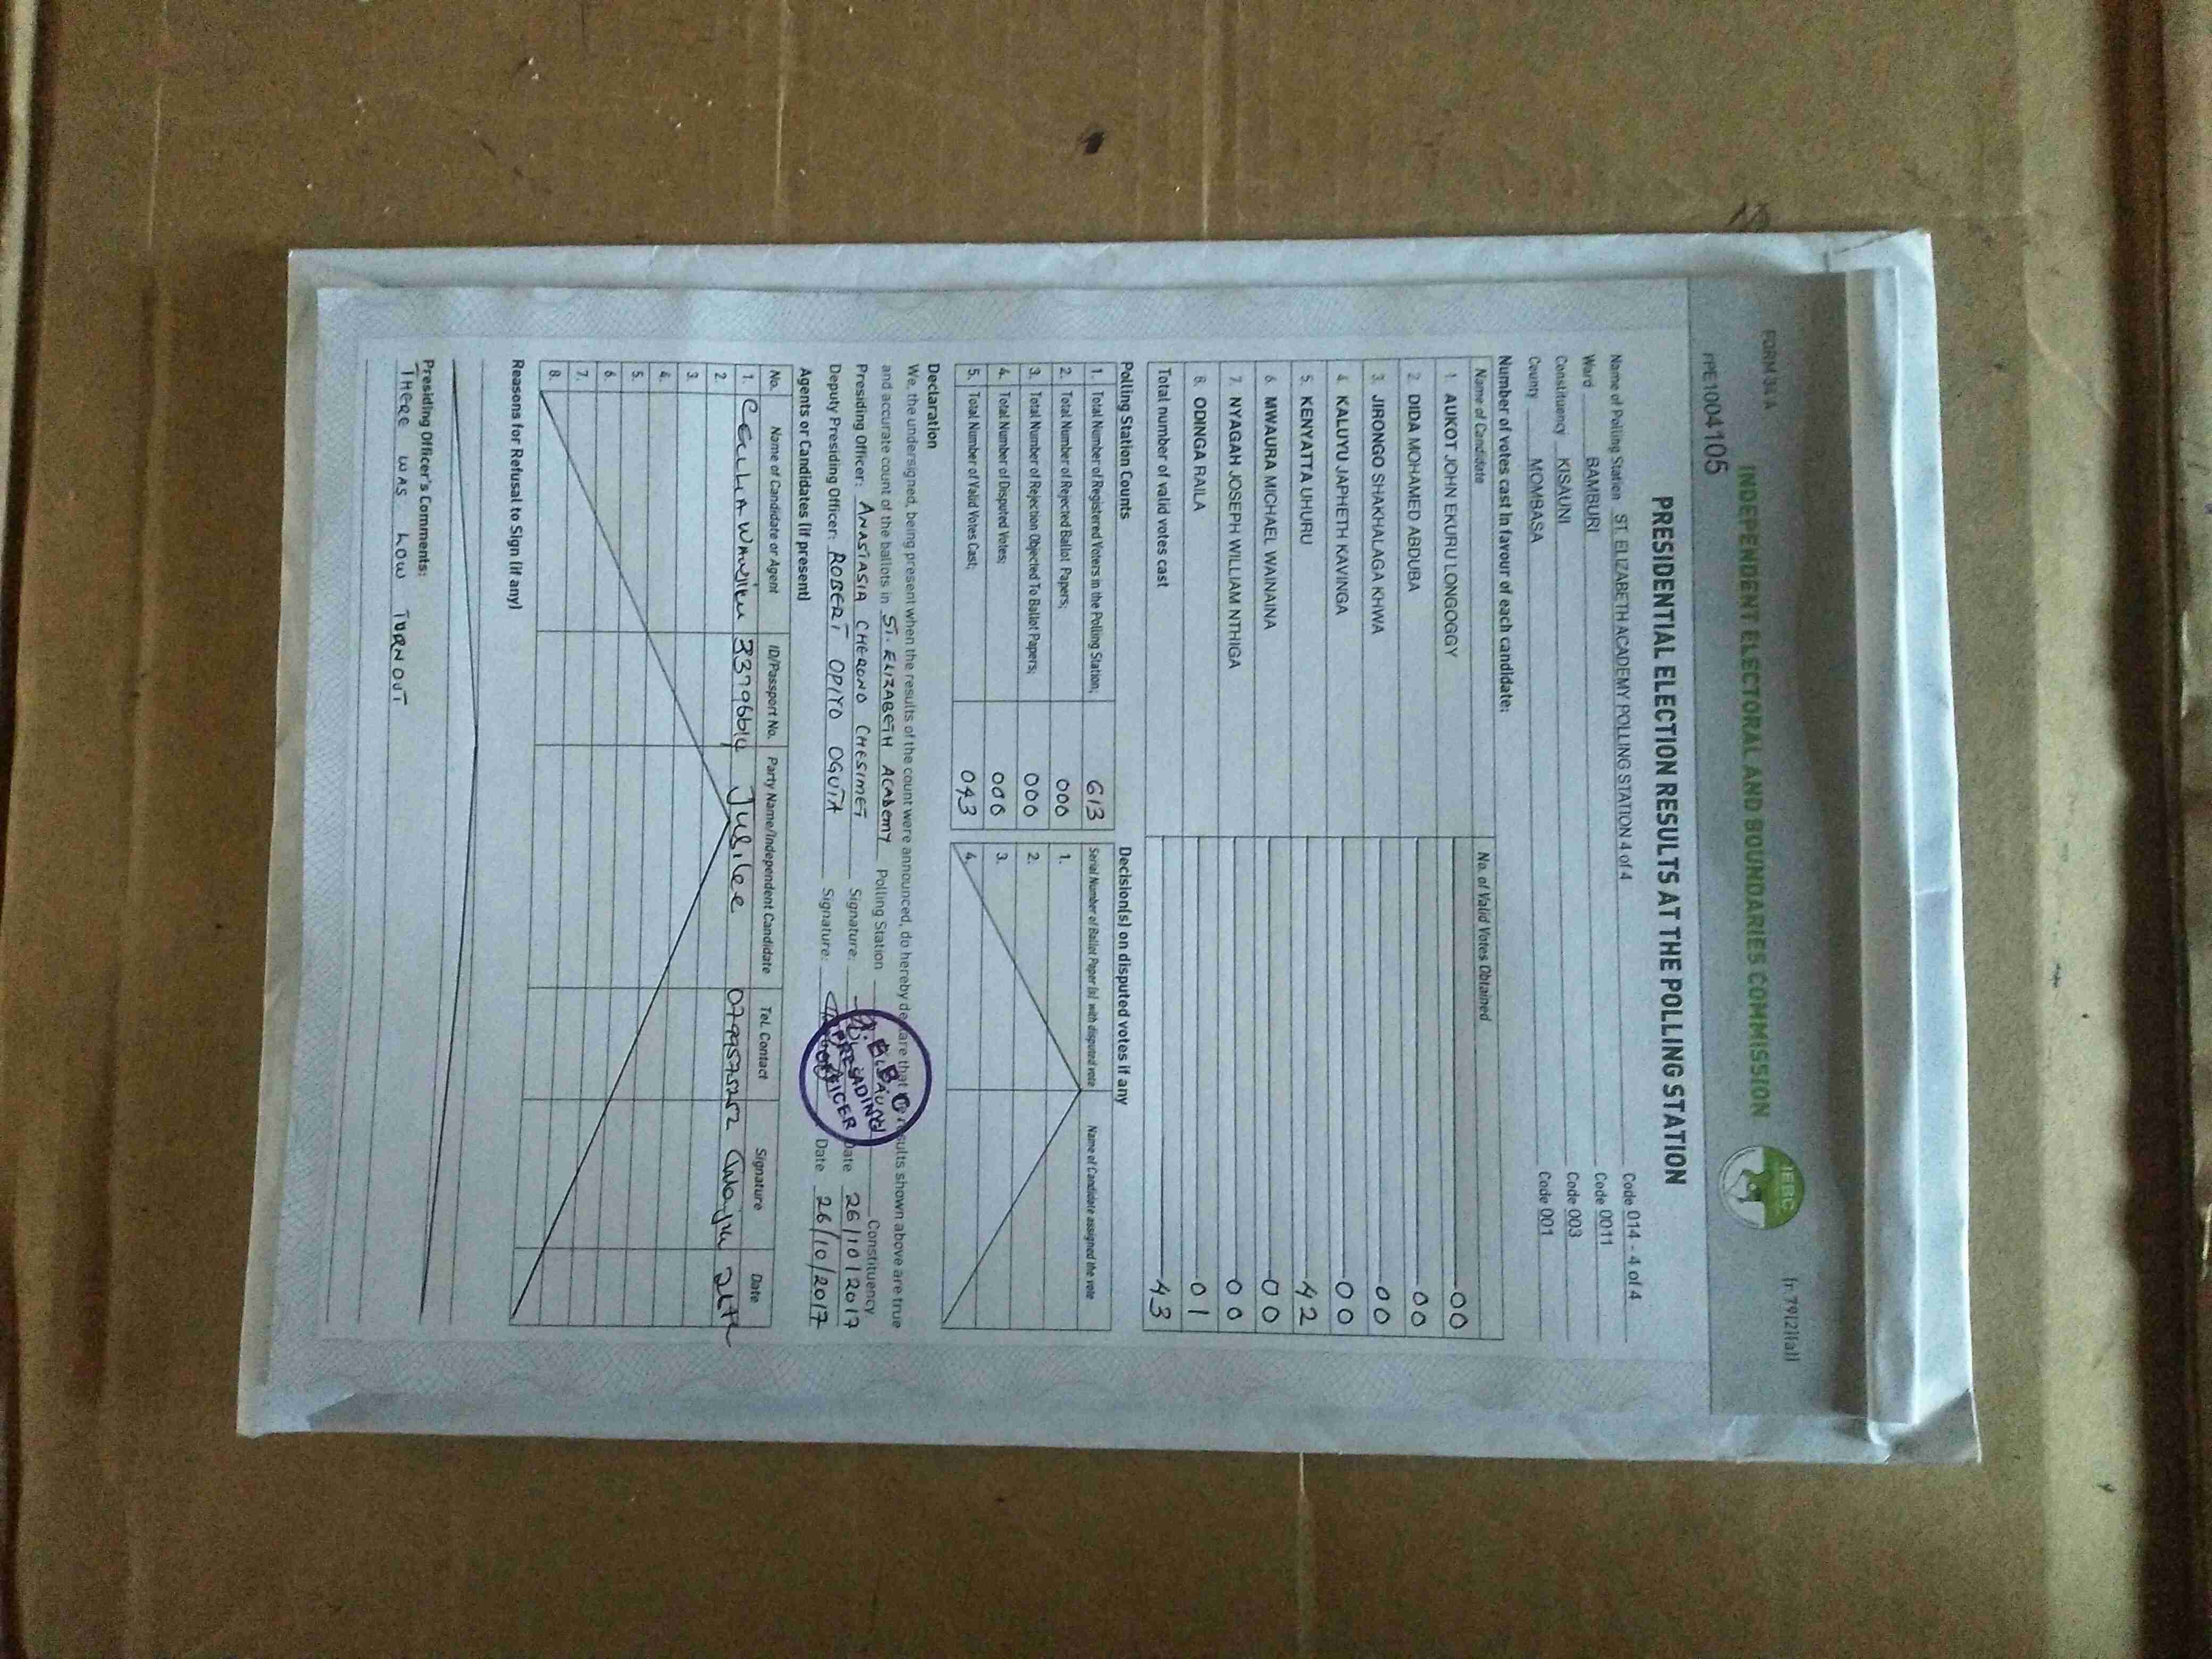 FORM 34 A
(r. 79(2)(a))
INDEPENDENT ELECTORAL AND BOUNDARIES COMMISSION
IEBC
PPE1004105
PRESIDENTIAL ELECTION RESULTS AT THE POLLING STATION
Name of Polling Station ST. ELIZABETH ACADEMY POLLING STATION 4 of 4 Code 014 - 4 of 4
Ward BAMBURI Code 0011
Constituency KISAUNI Code 003
County MOMBASA Code 001
Number of votes cast in favour of each candidate:
Name of Candidate No. of Valid Votes Obtained
1. AUKOT JOHN EKURU LONGOGGY 00
2. DIDA MOHAMED ABDUBA 00
3. JIRONGO SHAKHALAGA KHWA 00
4. KALUYU JAPHETH KAVINGA 00
5. KENYATTA UHURU 42
6. MWAURA MICHAEL WAINAINA 00
7. NYAGAH JOSEPH WILLIAM NTHIGA 00
8. ODINGA RAILA 01
Total number of valid votes cast 43
Polling Station Counts
1. Total Number of Registered Voters in the Polling Station; 613
2. Total Number of Rejected Ballot Papers; 000
3. Total Number of Rejection Objected To Ballot Papers; 000
4. Total Number of Disputed Votes; 000
5. Total Number of Valid Votes Cast; 043
Decision(s) on disputed votes if any
Serial Number of Ballot Paper (s) with disputed vote Name of Candidate assigned the vote
1.
2.
3.
4.
Declaration
We, the undersigned, being present when the results of the count were announced, do hereby declare that the results shown above are true
and accurate count of the ballots in ST. ELIZABETH ACADEMY Polling Station Constituency.
Presiding Officer: ANASTASIA CHERONO CHESIMET Signature: Date 26/10/2017
Deputy Presiding Officer: ROBERT OPIYO OGUTA Signature: Date 26/10/2017
PRESIDING
OFFICER
Agents or Candidatates (if present)
No. Name of Candidate or Agent ID/Passport No. Party Name/Independent Candidate Tel. Contact Signature Date
1. CECILIA WANJIKU Jubilee 26th
2.
3.
4.
5.
6.
7.
8.
Reasons for Refusal to Sign (if any)
Presiding Officer's Comments:
THERE WAS LOW TURNOUT